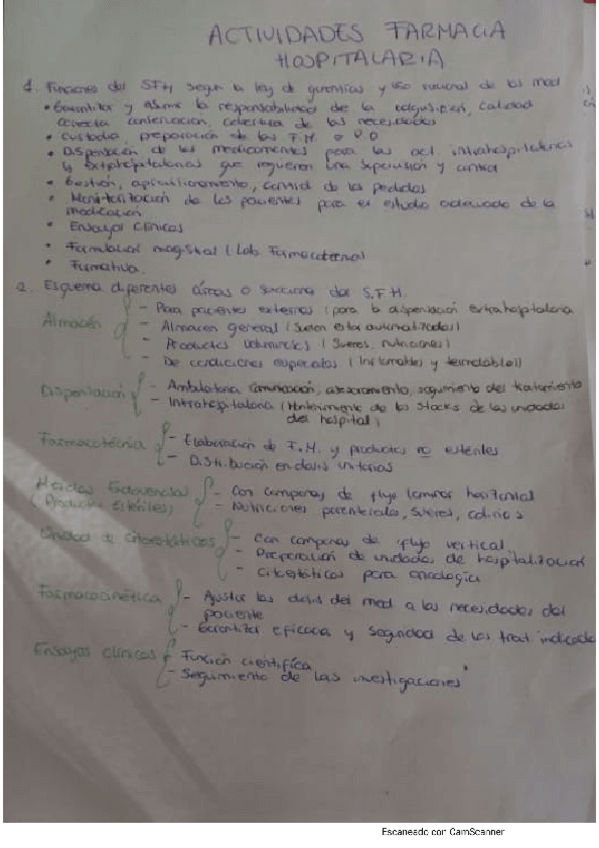 ACTIVIDADES FARMACIA
HOSPITALARIA
1. Funciones del SFH según la ley de garantías y uso racional de los med
• Garantizar y asumir la responsabilidad de la adquisición, calidad
correcta conservación, cobertura de las necesidades
• Custodia, preparación de las F.M. o P.O
• Dispensación de los medicamentos para las act. intrahospitalarias
y extrahospitalarias que requieren una supervisión y control
• Gestión, aprovisionamiento, control de los pedidos
• Monitorización de los pacientes para el estudio adecuado de la
medicación
• Ensayos clínicos
• Formulación magistral (Lab. Farmacotecnia)
• Formativa.
2. Esquema diferentes áreas o secciones del S.F.H.
Almacén
- Para pacientes externos (para la dispensación extrahospitalaria
- Almacen general (Suelen estar automatizados)
- Productos voluminosos (Sueros, nutriciones)
- De condiciones especiales (Inflamables y termolábiles)
Dispensación
- Ambulatoria comunicación, asesoramiento, seguimiento del tratamiento
- Intrahospitalaria (Mantenimiento de los stocks de las unidades
del hospital)
Farmacotecnia
- Elaboración de F.M. y productos no estériles
- Distribución en dosis unitarias
Mezclas Endovenosas
(Productos Estériles)
- Con campanas de flujo laminar horizontal
- Nutriciones parenterales, sueros, colirios
Unidad de Citostáticos
- Con campanas de flujo vertical
- Preparación de unidades de hospitalización
- Citostáticos para oncología
Farmacocinética
- Ajustar las dosis del med a las necesidades del
paciente
- Garantizar eficacia y seguridad de los trat. indicado
Ensayos clínicos
- Función científica
- Seguimiento de las investigaciones
Escaneado con CamScanner